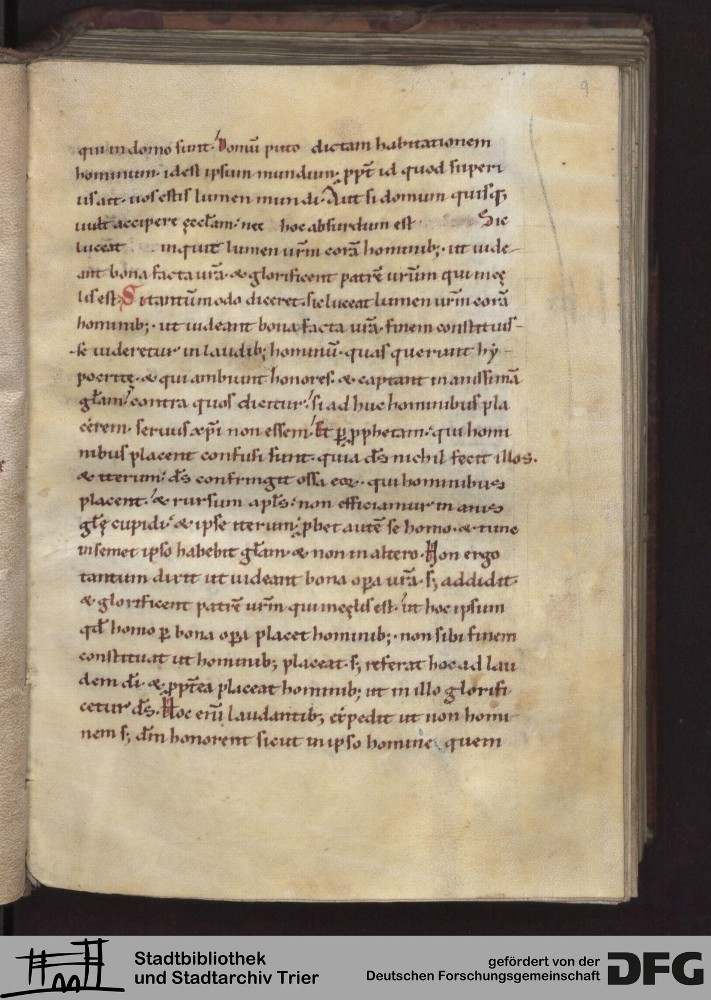 9
qui in domo sunt. Domū puto dictam habitationem
hominum. id est ipsum mundum. ppt id quod superi
us ait. uos estis lumen mundi. Aut si domum quisq;
uult accipere ęccłam. nec hoc absurdum est Sic
luceat inquit lumen urm̄ corā hominib; ut uide-
ant bona facta urā. & glorificent patrē urūm qui in cę
lis est. Si tantūmodo diceret. sic luceat lumen urm̄ corā
hominib; ut uideant bona facta urā. finem constituis-
-se uideretur in laudib; hominū. quas querunt hy-
pocritę. & qui ambiunt honores. & captant inanissimā
głam. contra quos dicitur. si ad huc hominibus pla
cerem. seruus xp̄i non essem. Et p pphetam. qui homi
nibus placent confusi sunt. quia d̄s nichil fecit illos.
& iterum. d̄s confringit ossa eoꝝ. qui hominibus
placent. & rursum apłs. non efficiamur inanis
głę cupidi. & ipse iterum. pbet autē se homo. & tunc
in semet ipso habebit głam. & non in altero. Non ergo
tantum dixit ut uideant bona opa urā. s; addidit
& glorificent patrē urm̄ qui in cęlis est. ut hoc ipsum
qd̄ homo p bona opa placet hominib; non sibi finem
constituat ut hominib; placeat. s; referat hoc ad lau
dem dī. & ppt̄ea placeat hominib; ut in illo glorifi
cetur d̄s. Hoc enī laudantib; expedit ut non homi
nem s; dm̄ honorent sicut in ipso homine quem
Stadtbibliothek
und Stadtarchiv Trier
gefördert von der
Deutschen Forschungsgemeinschaft
DFG